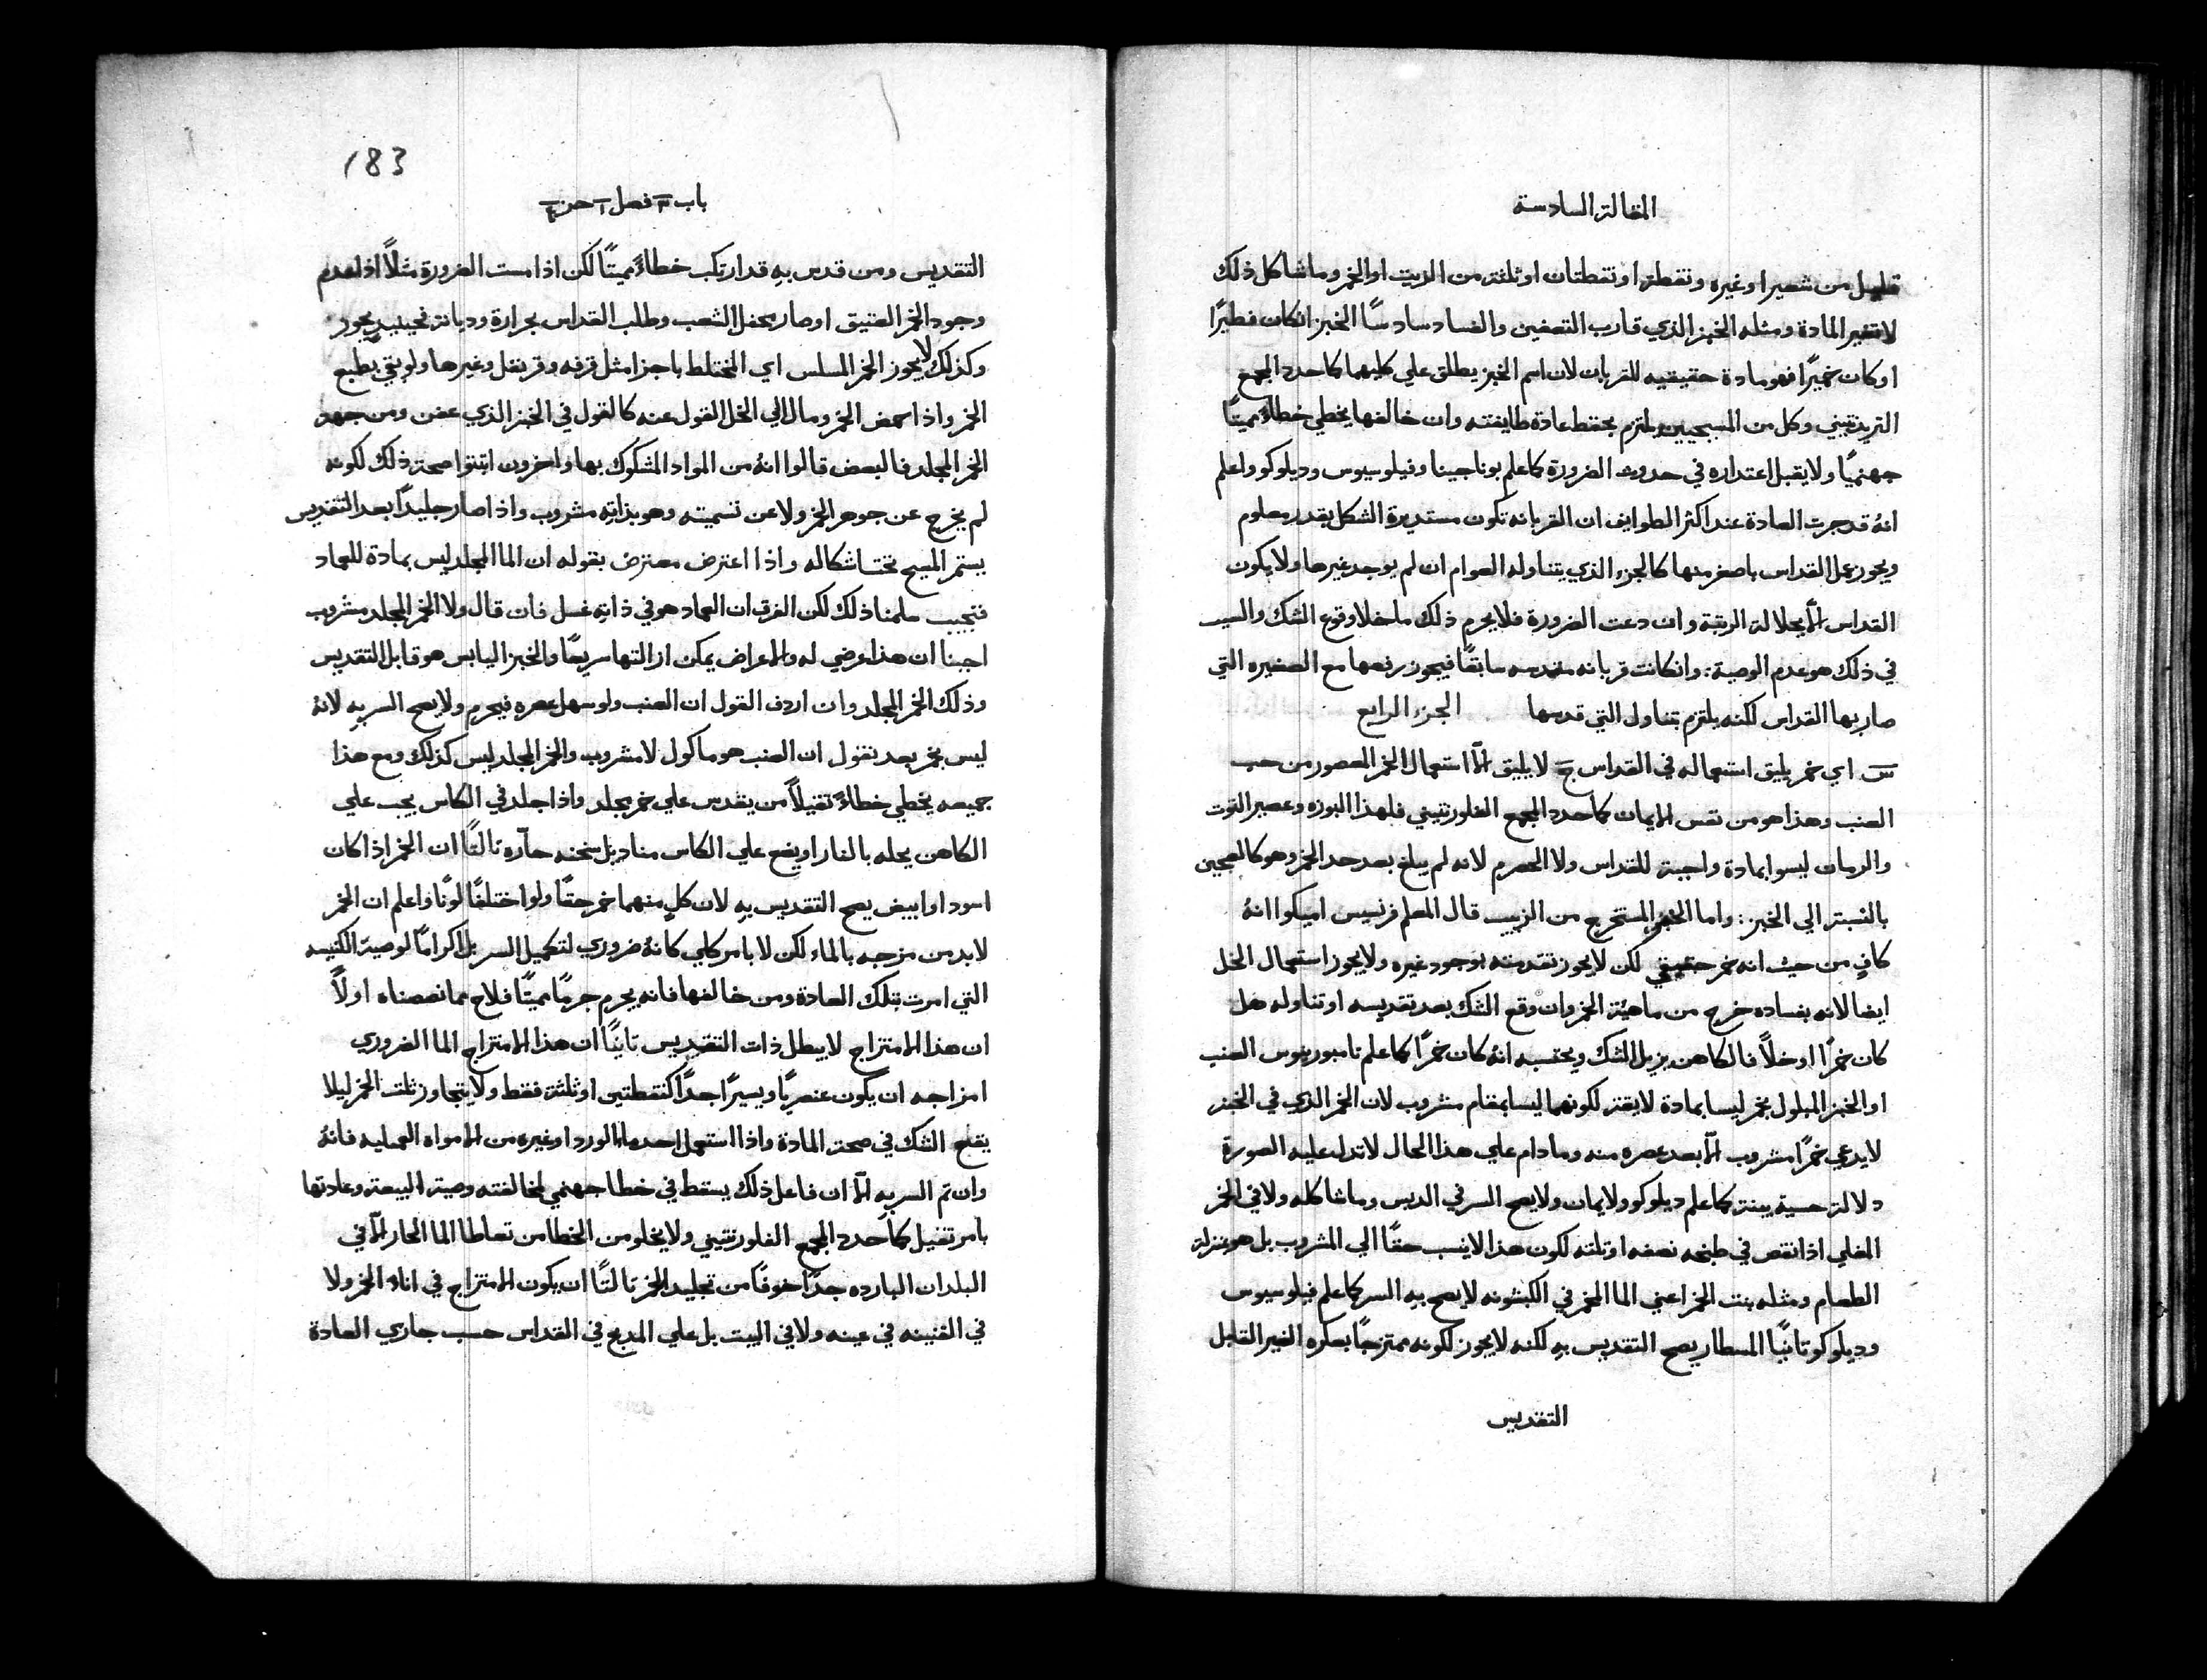 المقالة السادسة
قليل من شعير او غيره ونقطة او نقطتان او ثلثة من الزيت او الخمر وما شاكل ذلك
لا تغير المادة ومثله الخبز الذي قارب التعفين والفساد سادسًا الخبز انكان فطيرًا
او كان خميرًا فهو مادة حقيقيه للقربان لان اسم الخبز يطلق علي كليهما كما حدد المجمع
التريدنتيني وكل من المسيحيين يلتزم بحفظ عادة طايفته وان خالفها يخطي خطاءً مميتًا
جهنميًا ولا يقبل اعتذاره في حدوث الضرورة كما علم بوناجينا وفيلوسيوس وديلوكو واعلم
انهُ قد جرت العادة عند اكثر الطوايف ان القربانه تكون مستديرة الشكل بقدر معلوم
ويجوز عمل القداس باصغر منها كالجزء الذي يتناوله العوام ان لم يوجد غيرها ولا يكون
القداس الّا بجلالة الرتبة وان دعت الضرورة فلا يحرم ذلك ما خلا وقوع الشك والسبب
في ذلك هو عدم الوصية: وانكانت قربانه مقدسه سابقًا فيجوز رفعها مع الصغيره التي
صار بها القداس لكنه يلتزم بتناول التي قدسها الجزء الرابع
س اي خمر يليق استعماله في القداس ج لا يليق الّا استعمال الخمر المعصور من حب
العنب وهذا هو من نفس الايمان كما حدد المجمع الفلورنتيني فلهذا البوزه وعصير التوت
والرمان ليسوا بمادة واجبة للقداس ولا الحصرم لانه لم يبلغ بعد حد الخمر وهو كالعجين
بالنسبة الي الخبز: واما الخمر المستخرج من الزبيب قال المعلم فرنسيس اميكوا انهُ
كافٍ من حيث انه خمر حقيقي لكن لا يجوز تقدمته بوجود غيره ولا يجوز استعمال الخل
ايضا لانه بفساده خرج من ماهية الخمر وان وقع الشك بعد تقديسه او تناوله هل
كان خمرًا او خلًا فالكاهن يزيل الشك ويحتسبه انهُ كان خمرًا كما علم تامبورينوس العنب
او الخبز المبلول بخمر ليسا بمادة لايقة لكونهما ليسا بمقام مشروب لان الخمر الذي في الخبز
لا يدعي خمرًا مشروب الّا بعد عصره منه وما دام علي هذا الحال لا تدل عليه الصورة
دلالة حسية بينة كما علم ديلوكو ولايمان ولا يصح السر في الدبس وما شاكله ولا في الخمر
المغلي اذا نقص في طبخه نصفه او ثلثه لكون هذا لا ينسب حقًا الي المشروب بل هو بمنزلة
الطعام ومثله بنت الخمر اعني الما الخمر في الكبشونه لا يصح به السر كما علم فيلوسيوس
وديلوكو ثانيًا المسطار يصح التقديس به لكنه لا يجوز لكونه ممتزجًا بعكره الغير القابل
التقديس
183
باب ٣ فصل ١ جز ٤
التقديس ومن قدس بهِ قد ارتكب خطاءً مميتًا لكن اذا مست الضرورة مثلًا اذا عدم
وجود الخمر العتيق او صار بحفل الشعب وطلب القداس بحرارة وديانة فحينيدٍ يجوز
وكذلك لا يجوز الخمر المسلس اي المختلط باجزا مثل قرفه وقرنفل وغيرها ولو بقي بطبع
الخمر واذا حمض الخمر ومال الي الخل القول عنه كالقول في الخبز الذي عفن ومن جهة
الخمر المجلد فالبعض قالوا انهُ من المواد المشكوك بها واخرون اثبتوا صحة ذلك لكونه
لم يخرج عن جوهر الخمر ولا عن تسميته وهو بذاتهِ مشروب واذا صار جليدًا بعد التقديس
يستمر المسيح تحت اشكاله واذا اعترض معترض بقوله ان الما المجلد ليس بمادة للعماد
فنجيب سلمنا ذلك لكن الفرق ان العماد هو في ذاتهِ غسل فان قال ولا الخمر المجلد مشروب
اجبنا ان هذا عرضي له والاعراض يمكن ازالتها سريعًا والخبز اليابس هو قابل التقديس
وذلك الخمر المجلد وان اردف القول ان العنب ولو سهل عصره فيحرم ولا يصح السر بهِ لانهُ
ليس بخمر بعد نقول ان العنب هو ماكول لا مشروب والخمر المجلد ليس كذلك ومع هذا
جميعه يخطي خطاءً ثقيلًا من يقدس علي خمر مجلد واذا جلد في الكاس يجب علي
الكاهن يحله بالنار او يضع علي الكاس مناديل سخنه حارّه ثالثًا ان الخمر اذا كان
اسود او ابيض يصح التقديس بهِ لان كلٍ منهما خمر حقًا ولو اختلفا لونًا واعلم ان الخمر
لابد من مزجه بالماء لكن لا بامر كلي كانهُ ضروري لتكميل السر بل اكرامًا لوصية الكنيسه
التي امرت بتلك العادة ومن خالفها فانه يجرم جرمًا مميتًا فلاح مما نصصناه اولًا
ان هذا الامتزاج لا يبطل ذات التقديس ثانيًا ان هذا الامتزاج الما الضروري
امزاجه ان يكون عنصريًا ويسيرًا جدًا كنقطتين او ثلثة فقط ولا يتجاوز ثلث الخمر ليلا
يقع الشك في صحة المادة واذا استعمل احد ماء الورد او غيره من الامواه العمليه فانهُ
وان تم السر بهِ الّا ان فاعل ذلك يسقط في خطا جهنمي لمخالفته وصية البيعة وعادتها
بامر ثقيل كما حدد المجمع الفلورنتيني ولا يخلو من الخطا من تعاطا الما الحار الّا في
البلدان البارده جدًا خوفًا من تجليد الخمر ثالثًا ان يكون الامتزاج في اناء الخمر ولا
في القنينه في عينه ولا في البيت بل علي المدبح في القداس حسب جاري العادة